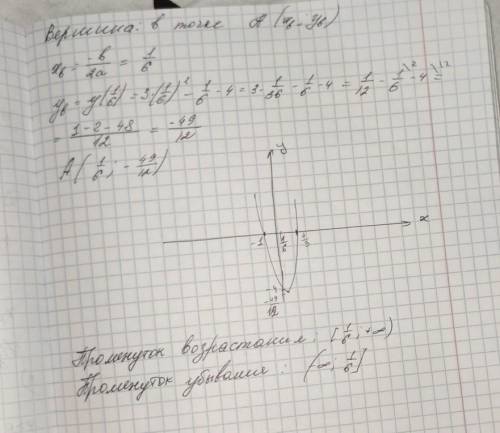 Вершина: в точке A (x₆ - y₆)
x₆ = -b/2a = 1/6
y₆ = y(1/6) = 3·(1/6)² - 1/6 - 4 = 3·1/36 - 1/6 - 4 = 1/12 - 1/6\2 - 4\12 =
= 1-2-48/12 = -49/12
A(1/6; -49/12)
y
x
-1 1/6
-4
-49/12
Промежуток возрастания: [1/6; +∞)
Промежуток убывания: (-∞; 1/6]